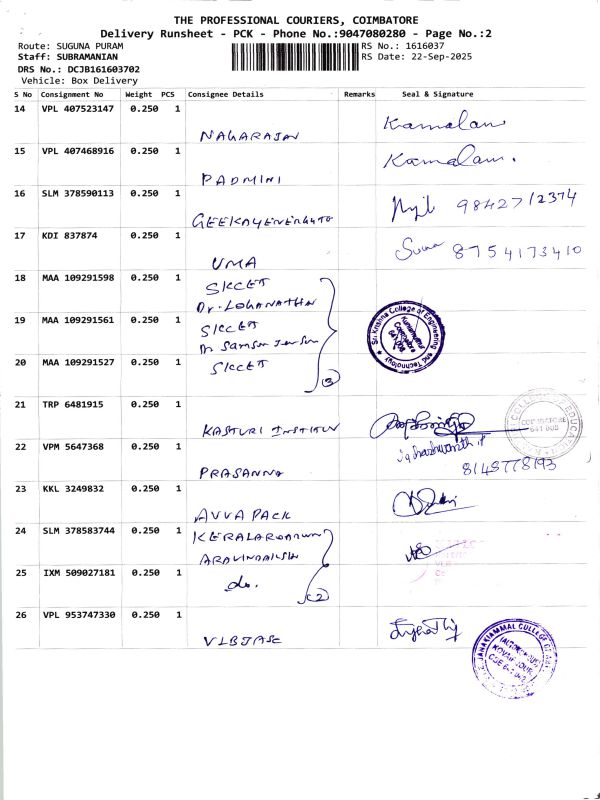 THE PROFESSIONAL COURIERS, COIMBATORE
Delivery Runsheet - PCK - Phone No.:9047080280 - Page No.:2
Route: SUGUNA PURAM
RS No.: 1616037
Staff: SUBRAMANIAN
RS Date: 22-Sep-2025
DRS No.: DCJB161603702
Vehicle: Box Delivery
S No Consignment No Weight PCS Consignee Details Remarks Seal & Signature
14 VPL 407523147 0.250 1
NAGARAJAN Kamalam
15 VPL 407468916 0.250 1
PADMINI Kamalam.
16 SLM 378590113 0.250 1
9842712374
17 KDI 837874 0.250 1
UMA Suma 8754173410
18 MAA 109291598 0.250 1
SKCET
Dr. LOGANATHAN
19 MAA 109291561 0.250 1
SKCET
Sri Krishna College of Engineering and Technology
Kuniamuthur
Coimbatore
20 MAA 109291527 0.250 1
SKCET
(3)
21 TRP 6481915 0.250 1
KASTURI INSTITUTE
COLLEGE OF EDUCATION
COIMBATORE
22 VPM 5647368 0.250 1
PRASANNA 8148778193
23 KKL 3249832 0.250 1
AVVA PACK
24 SLM 378583744 0.250 1
25 IXM 509027181 0.250 1
do. (2)
26 VPL 953747330 0.250 1
VLBJASC
JANAKIAMMAL COLLEGE OF